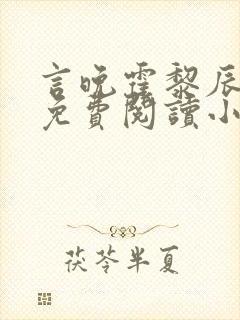 言晚霆黎辰
免費閱讀小
茯苓半夏